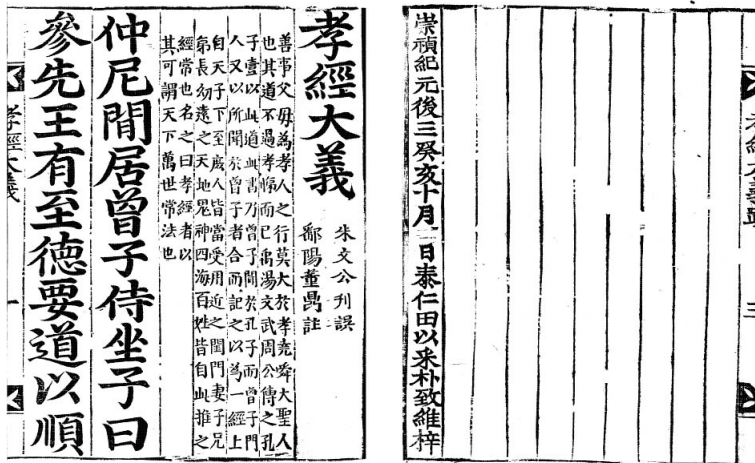 三
崇禎紀元後三癸亥十月日泰仁田以采朴致維梓
孝經大義
朱文公刊誤
鄱陽董鼎註
善事父母為孝人之行莫大於孝堯舜大聖人
也其道不過孝悌而已禹湯文武周公傳之孔
子壹以此道此書乃曾子聞於孔子而曾子門
人又以所聞於曾子者合而記之以為一經上
自天子下至庶人皆當受用近之閨門妻子兄
弟長幼遠之天地鬼神四海百姓皆自此推之
經常也名之曰孝經者以
其可謂天下萬世常法也
仲尼閒居曾子侍坐子曰
參先王有至德要道以順
孝經大義
一